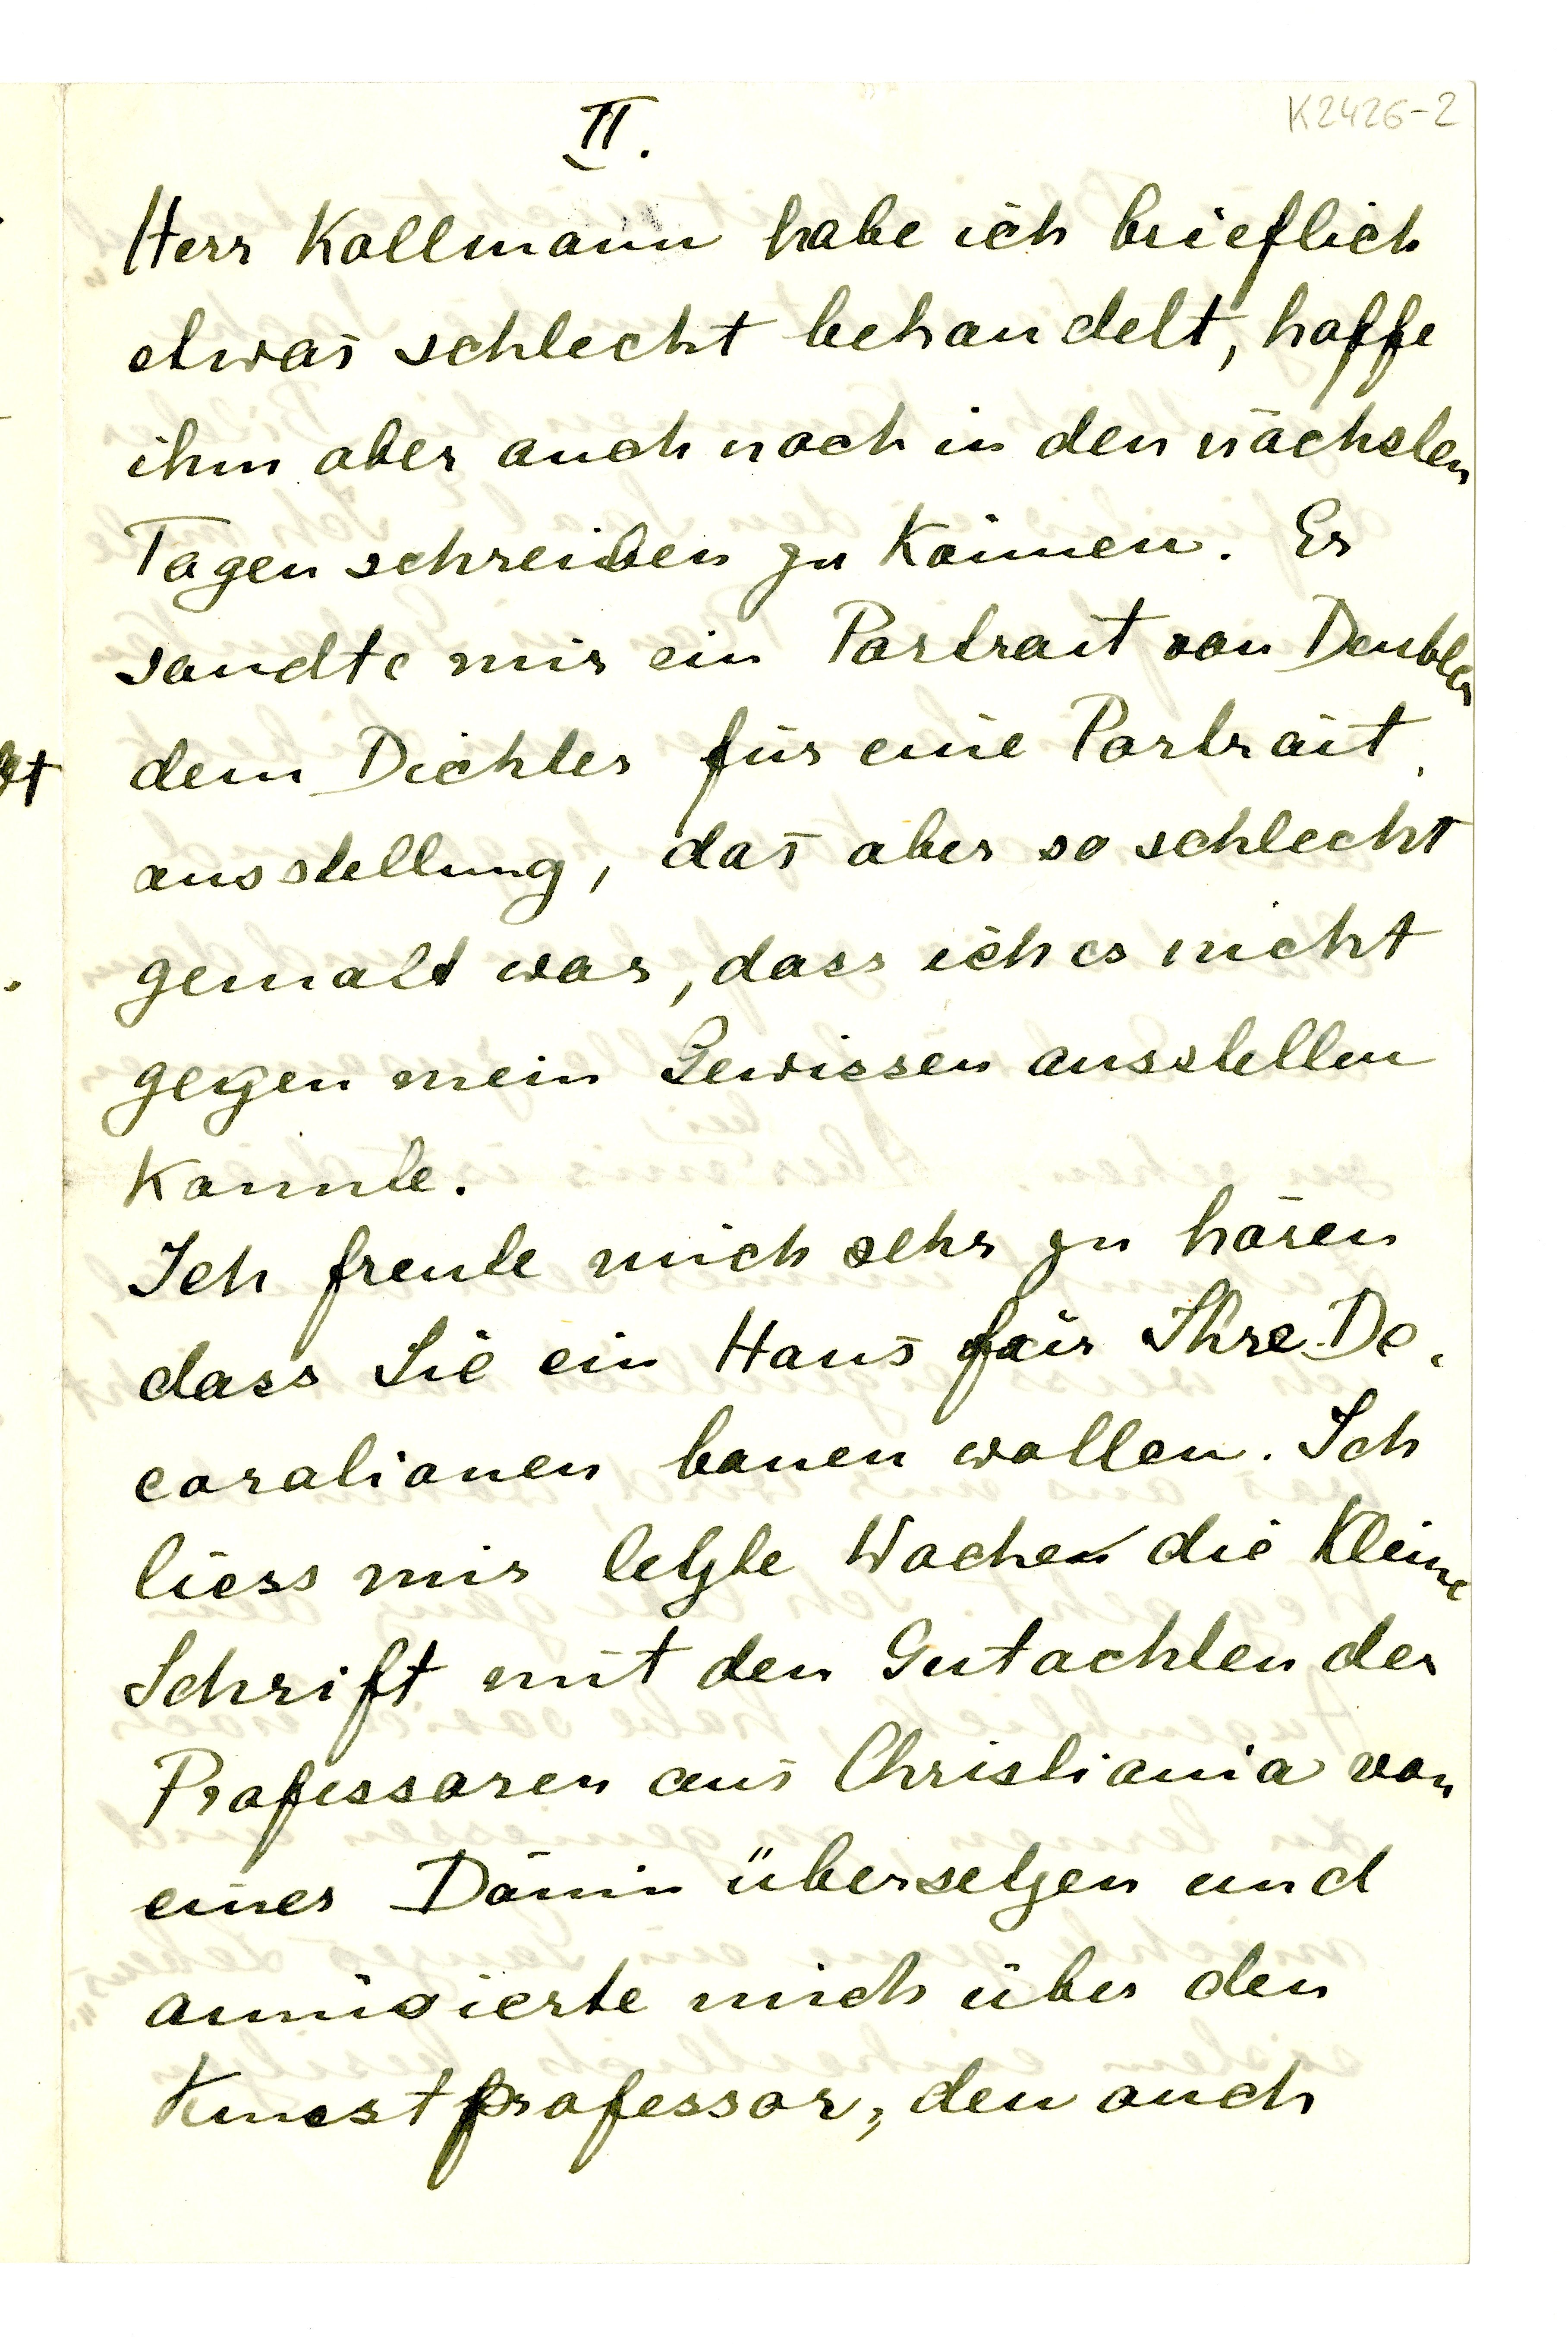 K2426-2
II.
Herr Kollmann habe ich brieflich
etwas schlecht behandelt, hoffe
ihm aber auch noch in den nächsten
Tagen schreiben zu können. Er
sandte mir ein Portrait von Deubler
dem Dichter für eine Portrait
ausstellung, das aber so schlecht
gemalt war, dass ich es nicht
gegen mein Gewissen ausstellen
konnte.
Ich freute mich sehr zu hören
dass Sie ein Haus für Ihre De-
corationen bauen wollen. Ich
liess mir letzte Woche die kleine
Schrift mit den Gutachten der
Professoren aus Christiania von
einer Dänin übersetzen und
amüsierte mich über den
Kunstprofessor, den auch